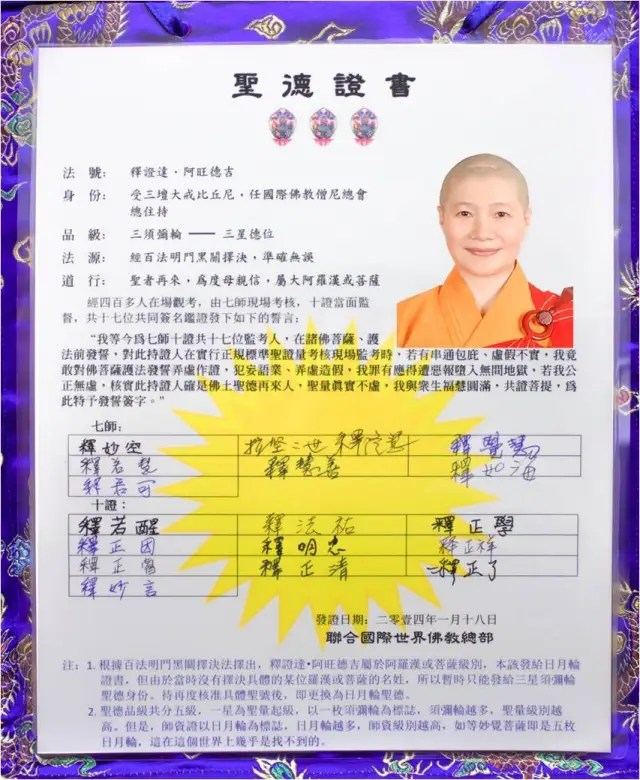 聖德證書
法 號： 釋證達．阿旺德吉
身 份： 受三壇大戒比丘尼，任國際佛教僧尼總會
總住持
品 級： 三須彌輪 —— 三星德位
法 源： 經百法明門黑關擇決，準確無誤
道 行： 聖者再來，爲度母親信，屬大阿羅漢或菩薩
經四百多人在場觀考，由七師現場考核，十證當面監
督，共十七位共同簽名鑑證發下如下的誓言：
“我等今爲七師十證共十七位監考人，在諸佛菩薩、護
法前發誓，對此持證人在實行正規標準聖證量考核現場監考時，若有串通包庇、虛假不實，我竟
敢對佛菩薩護法發誓弄虛作證，犯妄語業、弄虛造假，我罪有應得遭惡報墮入無間地獄，若我公
正無虛，核實此持證人確是佛土聖德再來人，聖量眞實不虛，我與衆生福慧圓滿，共證菩提，爲
此特予發誓簽字。”
七師：
釋妙空 釋覺慧
釋若慧 釋慧善 釋如海
釋若可
十證：
釋若醒 釋法祐 釋正學
釋正因 釋明忠 釋正祥
釋正 釋正清 釋正了
釋妙言
發證日期：二零壹四年一月十八日
聯合國際世界佛教總部
注： 1. 根據百法明門黑關擇決法擇出，釋證達•阿旺德吉屬於阿羅漢或菩薩級別，本該發給日月輪
證書，但由於當時沒有擇決具體的某位羅漢或菩薩的名姓，所以暫時只能發給三星須彌輪
聖德身份。待再度核准具體聖號後，即更換為日月輪聖德。
2. 聖德品級共分五級，一星為聖量起級，以一枚須彌輪為標誌，須彌輪越多，聖量級別越
高。但是，師資證以日月輪為標誌，日月輪越多，師資級別越高，如等妙覺菩薩即是五枚
日月輪，這在這個世界上幾乎是找不到的。